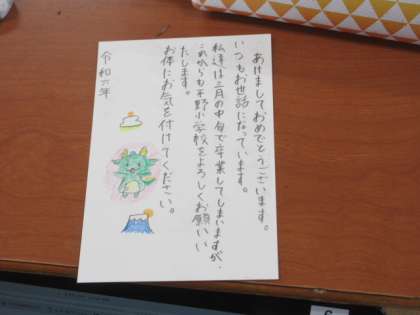 あけましておめでとうございます。
いつもお世話になっています。
私達は三月の中旬で卒業してしまいますが、
これからも平野小学校をよろしくお願いい
たします。
お体にお気を付けてください。
令和六年